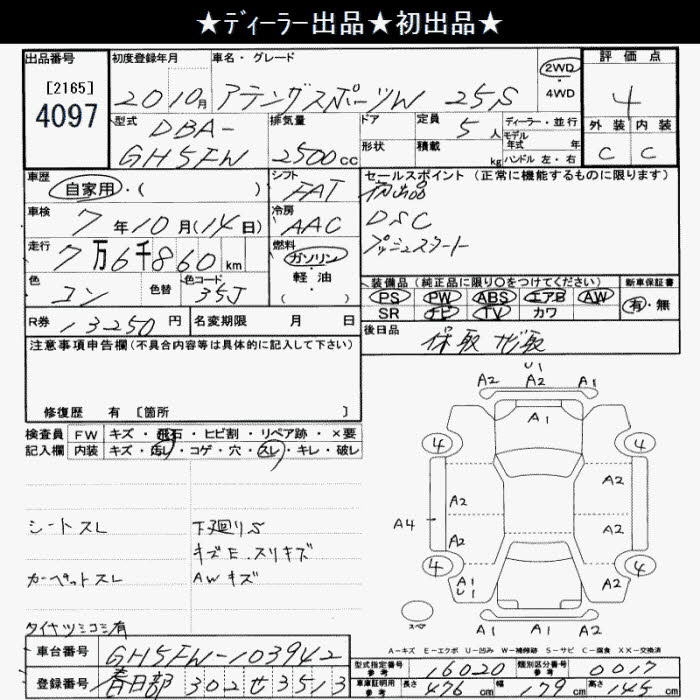 ★ディーラー出品★初出品★
出品番号
[2165]
4097
初度登録年月
20 10月
車名・グレード
アテンザスポーツW 25S
2WD
・
4WD
評価点
4
外装 内装
C C
型式
DBA-
GH5FW
排気量
2500cc
ドア
形状
定員
5人
積載
kg
ディーラー・並行
モデル
年式 年
ハンドル 左・右
車歴
自家用・( )
シフト
FAT
セールスポイント (正常に機能するものに限ります)
初出品
DSC
プッシュスタート
車検
7年10月(14日)
冷房
AAC
走行
7万6千860km
燃料
ガソリン
軽油
( ・ )
色
コン
色替
色コード
35J
装備品 (純正品に限り○をつけてください)
PS PW ABS エアB AW
SR ナビ TV カワ
新車保証書
有・無
R券 13250円
名変期限 月 日
後日品
保取 ナビ取
注意事項申告欄(不具合内容等は具体的に記入して下さい)
修復歴 有 [箇所 ]
検査員
記入欄
FW キズ・飛石・ヒビ割・リペア跡・×要
内装 キズ・汚レ・コゲ・穴・スレ・キレ・破レ
シートスレ
カーペットスレ
タイヤツミコミ有
下廻りS
キズE.スリキズ
AWキズ
U1
A2 A2 A1
A1
4 4
A2 A2
A4 A2 A2
4 4
A1
U1
A2
スペア
A2 A2 A1
A-キズ E-エクボ U-凹み W-補修跡 S-サビ C-腐食 XX-交換済
車台番号 GH5FW-103942
登録番号 春日部 302せ3513
型式指定番号
参考
16020
類別区分番号
参考
0017
車庫証明用
参考
長さ 476cm 幅 179cm 高さ 145cm